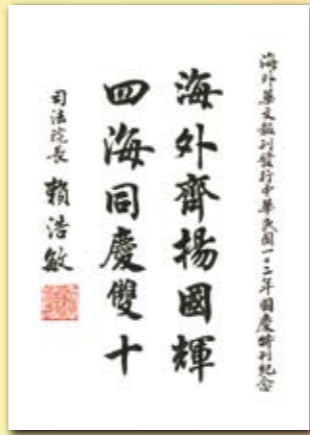 海外華文報刊發行中華民國一○二年國慶特刊紀念
海外齊揚國輝
四海同慶雙十
司法院長 賴浩敏